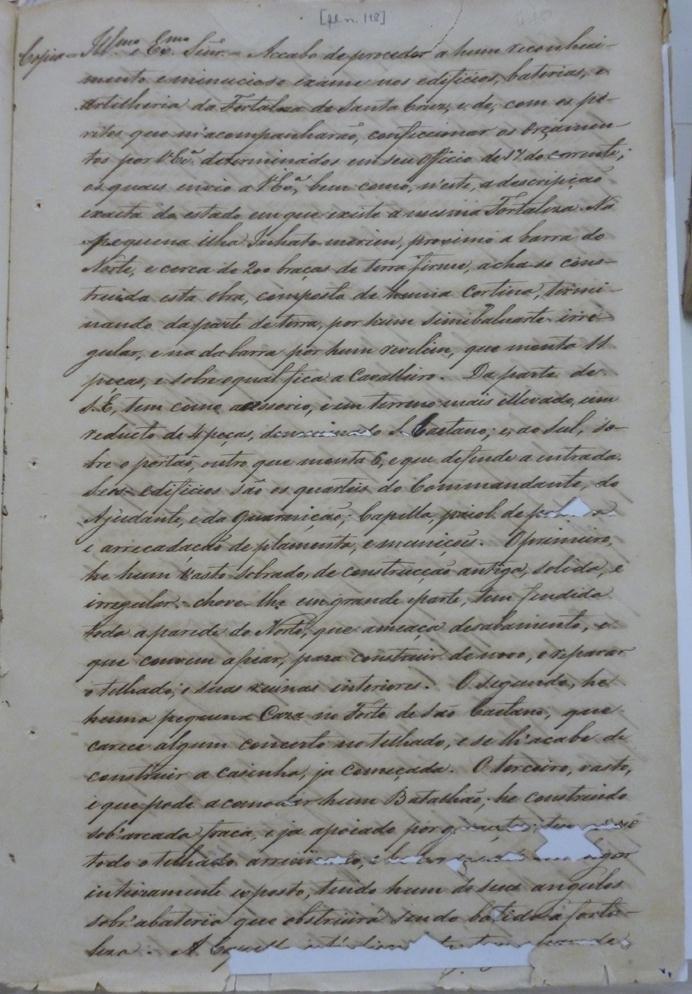 [fl. n. 118]
Copia = Illmo e Exmo Senr = Accabo de proceder a hum reconheci-
mento e minucioso exame nos edificios, baterias, e
artilheria da Fortaleza de Santa Cruz, e de, com os pe-
ritos que m'acompanharão, confeccionar os Orçamen-
tos por V. Exa. determinados em seu Officio de 17 do corrente;
os quais envio a V. Exa, bem como, n'este, a descripção
exacta do estado em que existe a mesma Fortaleza. Na
pequena ilha proximo a barra do
Norte, e cerca de 200 braças de terra firme, acha-se cons-
truida esta obra, composta de huma Cortina, termi-
nando da parte de terra, por hum simibaluarte irre-
gular, e na da barra por hum revelim, que monta 11
peças, e sobre o qual fica a Cavalleiro. Da parte de
S.E, tem como acessorio, e em terreno mais ellevado, um
reducto de 4 peças, S. Caetano; e, ao Sul, so-
bre o portão, outro que monta 6, e que defende a entrada.
Seus edificios são os quarteis do Commandante, do
Ajudante, e da Guarnição; Capella, de
e arrecadação de , e munições. O primeiro,
he hum vasto sobrado, de construcção antiga, solida, e
irregular: chove-lhe em grande parte, tem fendida
toda a parede do Norte, que ameaça desabamento, e
que convem apiar, para construir de novo, e reparar
o telhado, e suas ruinas interiores. O segundo, he
huma pequena Caza no Forte de São Caetano, que
carece algum concerto no telhado, e se lh'acabe de
construir a casinha, ja começada. O terceiro, vasto,
e que pode acomodar hum Batalhão, he construido
sob'arcada fraca, e ja apoiado por
todo o telhado
inteiramente exposto, tendo hum de seus angulos
sobr'a bateria que obstruirá sendo batida a forta-
leza. A